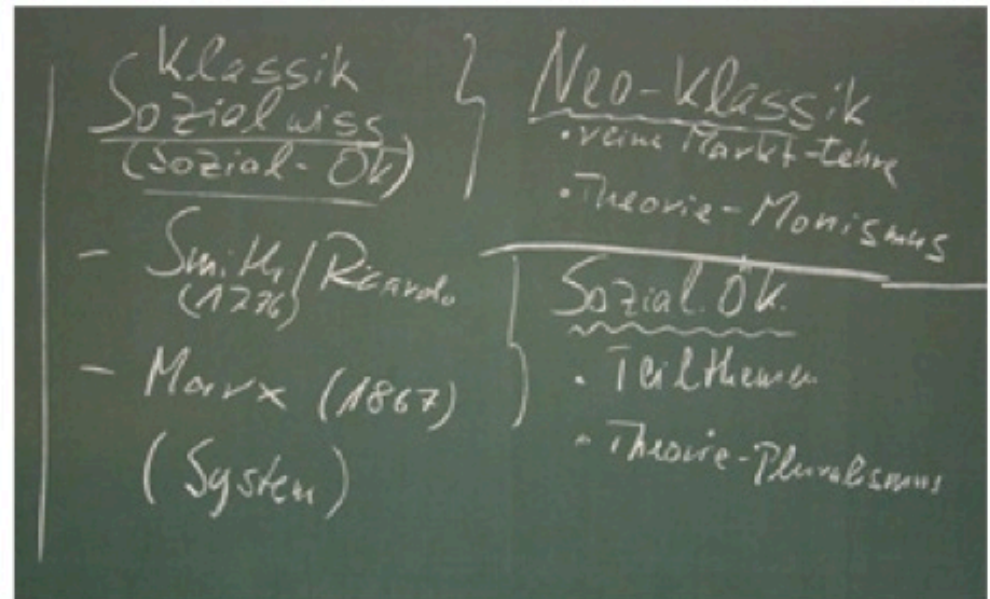 Klassik
Sozialwiss
(Sozial-Ök)
- Smith/Ricardo
(1776)
- Marx (1867)
(System)
Neo-Klassik
• reine Markt-Lehre
• Theorie-Monismus
Sozial.Ök.
• Teilthemen
• Theorie-Pluralismus